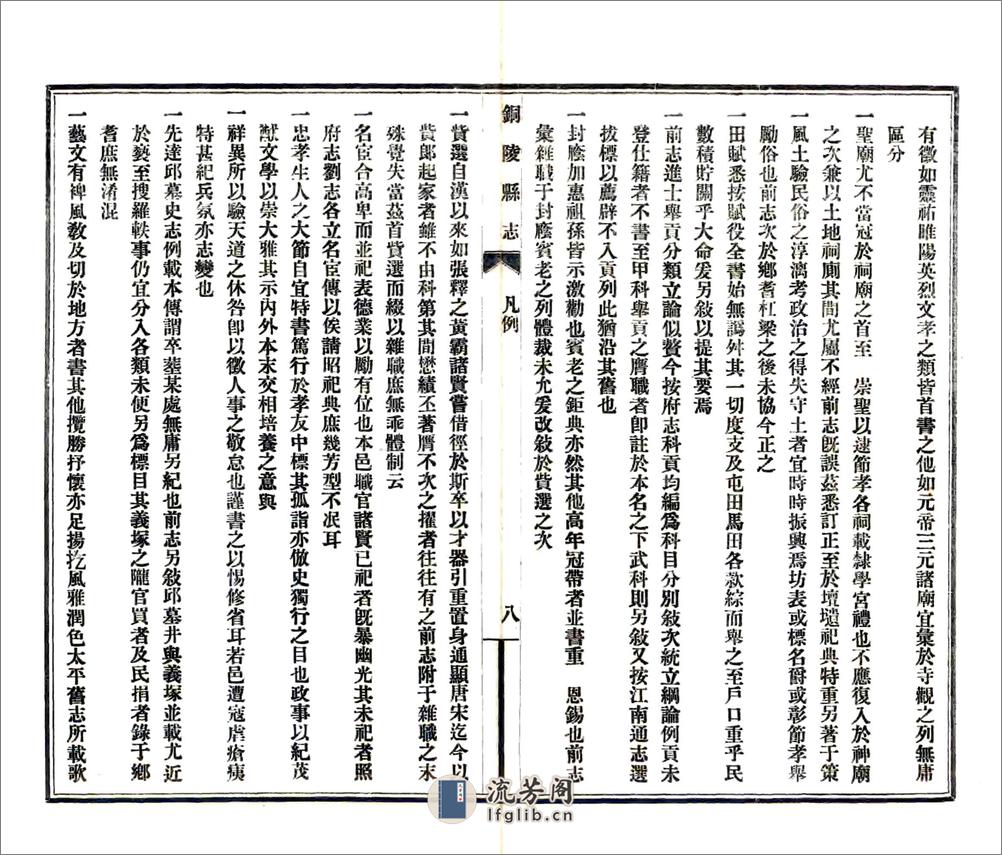 有徵如靈祐睢陽英烈文孝之類皆首書之他如元帝三元諸廟宜彙於寺觀之列無庸
區分
一聖廟尤不當冠於祠廟之首至　崇聖以逮節孝各祠載隸學宮禮也不應復入於神廟
之次兼以土地祠厠其間尤屬不經前志旣誤茲悉訂正至於壇壝祀典特重另著于策
一風土驗民俗之淳漓考政治之得失守土者宜時時振興焉坊表或標名爵或彰節孝舉
勵俗也前志次於鄉耆杠梁之後未協今正之
一田賦悉按賦役全書始無譌舛其一切度支及屯田馬田各款綜而舉之至戶口重乎民
數積貯關乎大命爰另敍以提其要焉
一前志進士舉貢分類立論似贅今按府志科貢均編爲科目分別敍次統立綱論例貢未
登仕籍者不書至甲科舉貢之膺職者卽註於本名之下武科則另敍又按江南通志選
拔標以薦辟不入貢列此猶沿其舊也
一封廕加惠祖孫皆示激勸也賓老之鉅典亦然其他高年冠帶者並書重　恩錫也前志
彙雜職于封廕賓老之列體裁未允爰改敍於貲選之次
銅陵縣志
凡例
八
一貲選自漢以來如張釋之黃霸諸賢嘗借徑於斯卒以才器引重置身通顯唐宋迄今以
貲郎起家者雖不由科第其間懋績丕著膺不次之擢者往往有之前志附于雜職之末
殊覺失當茲首貲選而綴以雜職庶無乖體制云
一名臣合高卑而並祀表德業以勵有位也本邑職官諸賢已祀者旣暴幽光其未祀者照
府志劉志各立名臣傳以俟請昭祀典庶幾芳型不泯耳
一忠孝生人之大節自宜特書篤行於孝友中標其孤詣亦倣史獨行之目也政事以紀茂
猷文學以崇大雅其示內外本末交相培養之意與
一祥異所以驗天道之休咎卽以徵人事之敬怠也謹書之以惕修省耳若邑遭寇虐瘡痍
特甚紀兵氛亦志變也
一先達邱墓史志例載本傳謂卒塟某處無庸另紀也前志另敍邱墓井與義塚並載尤近
於褻至搜羅軼事仍宜分入各類未便另爲標目其義塚之隴官買者及民捐者錄于鄉
耆庶無淆混
一藝文有裨風敎及切於地方者書其他攬勝抒懷亦足揚扢風雅潤色太平舊志所載歌
流芳阁
lfglib.cn